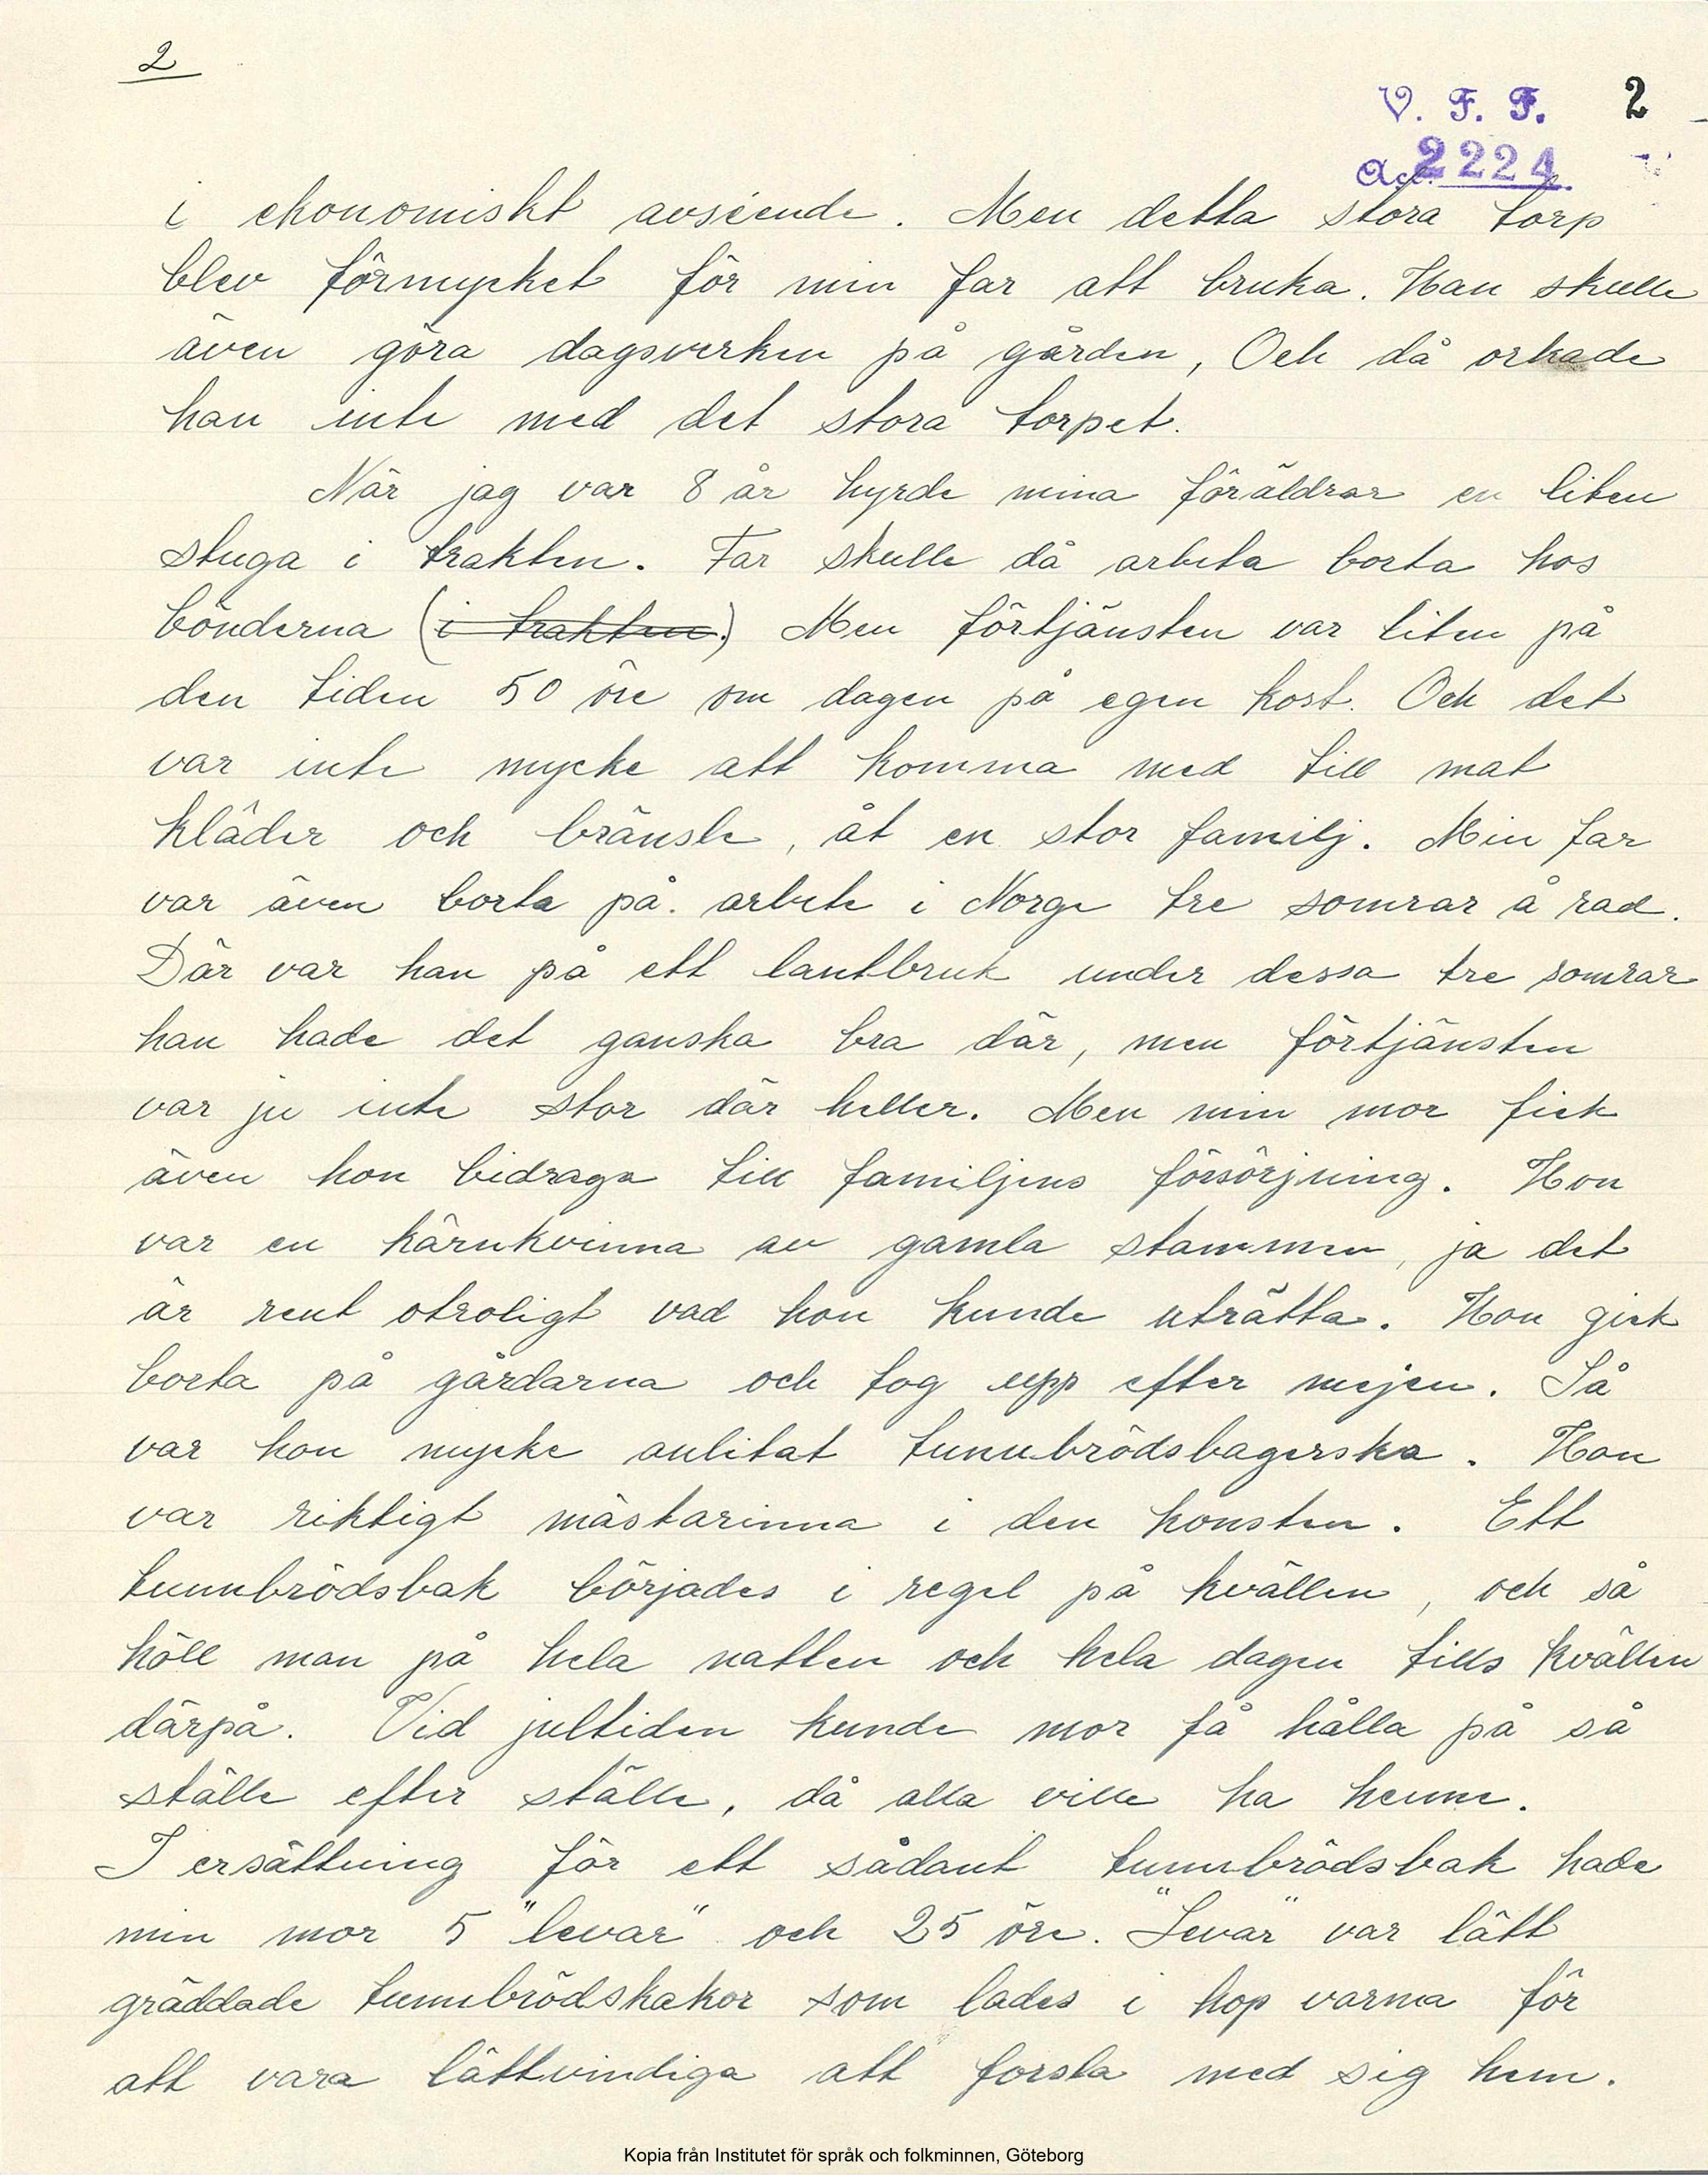 2
V. F. F. 2
Acc. 2224
i ekonomiskt avséende. Men detta stora torp
blev förmycket för min far att bruka. Han skulle
även göra dagsverken på gården, Och då orkade
han inte med det stora torpet.
När jag var 8 år hyrde mina föräldrar en liten
stuga i trakten. Far skulle då arbeta borta hos
bönderna (i trakten.) Men förtjänsten var liten på
den tiden 50 öre om dagen på egen kost. Och det
var inte mycke att komma med till mat
kläder och bränsle, åt en stor familj. Min far
var även borta på. arbete i Norge tre somrar å rad.
Där var han på ett lantbruk under dessa tre somrar
han hade det ganska bra där, men förtjänsten
var ju inte stor där heller. Men min mor fick
även hon bidraga till familjens försörjning. Hon
var en kärnkvinna av gamla stammen, ja det
är rent otroligt vad hon kunde uträtta. Hon gick
borta på gårdarna och tog upp efter mejen. Så
var hon mycke anlitat tunnbrödsbagerska. Hon
var riktigt mästarinna i den konsten. Ett
tunnbrödsbak började i regel på kvällen, och så
höll man på hela natten och hela dagen tills kvällen
därpå. Vid jultiden kunde mor få hålla på så
ställe efter ställe, då alla ville ha henne.
I ersättning för ett sådant tunnbrödsbak hade
min mor 5 "levar" och 25 öre. "Levar" var lätt
gräddade tunnbrödskakor som lades i hop varma för
att vara lättvindiga att forsla med sig hem.
Kopia från Institutet för språk och folkminnen, Göteborg